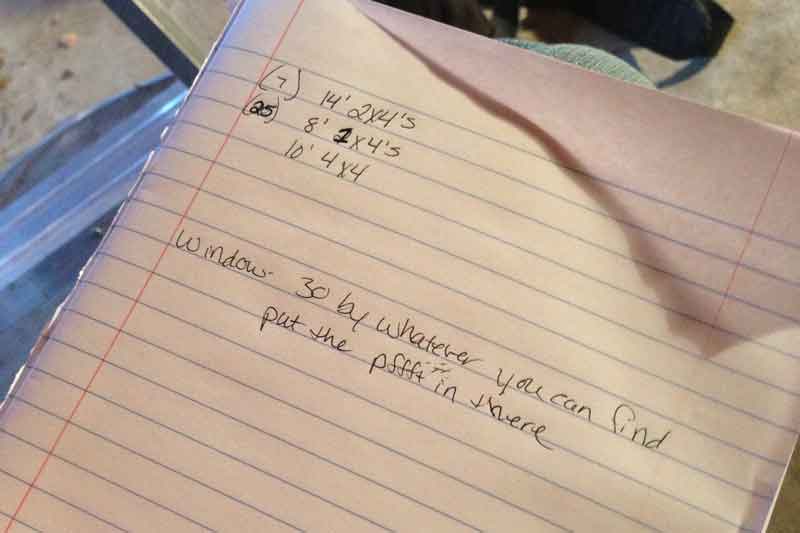 (7) 14' 2x4's
(25) 8' 2x4's
10' 4x4
Window- 30 by whatever you can find
put the pffft in there